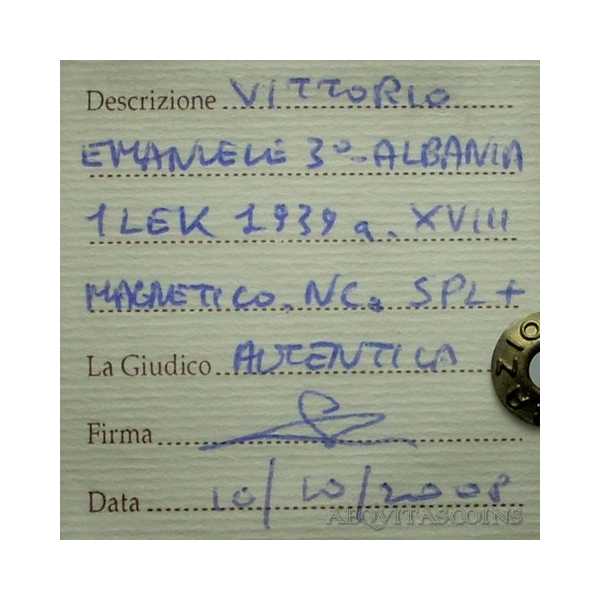 Descrizione VITTORIO
EMANUELE 3° - ALBANIA
1 LEK 1939 a. XVIII
MAGNETICO. NC. SPL+
La Giudico AUTENTICA
Firma
Data 10/10/2008
AEQVITASCOINS